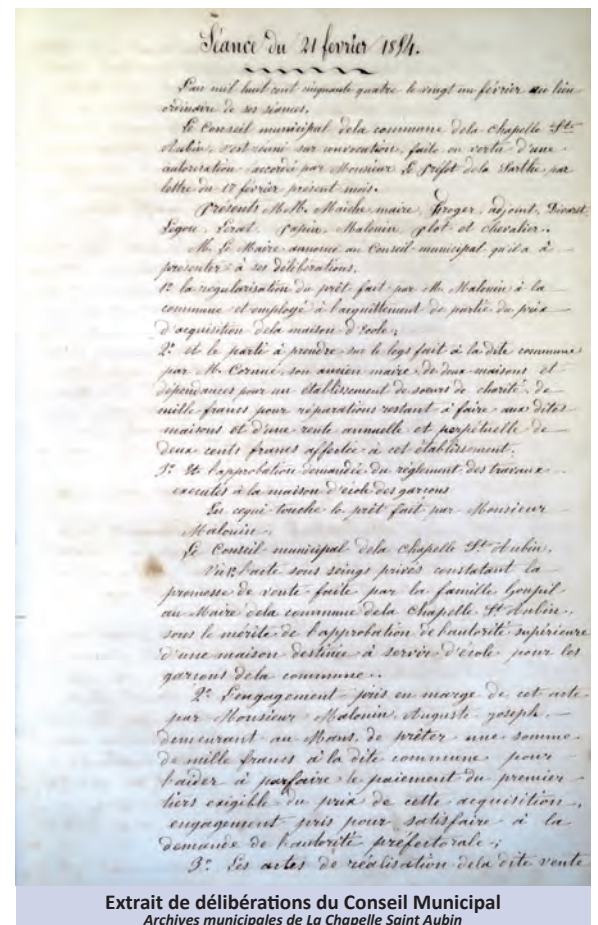 Séance du 21 février 1854.
L'an mil huit cent cinquante quatre le vingt un février au lieu
ordinaire de ses séances,
Le Conseil municipal dela commune dela chapelle St.
Aubin, s'est réuni sur convocation, faite en vertu d'une
autorisation accordée par Monsieur Le Préfet dela Sarthe par
lettre du 17 février présent mois.
Présents M.M. Maiche maire, Froger, adjoint,
Légou, Papin, Malouin, Plot et chevalier.
M. Le Maire annonce au Conseil municipal qu'il a à
présenter à ses délibérations.
1º la régularisation du prêt fait par M. Malouin à la
commune et employé à l'acquittement de partie du prix
d'acquisition dela maison d'école;
2º et le parti à prendre sur le legs fait à la dite commune
par M. Cornué, son ancien maire de deux maisons et
dépendances pour un établissement de sœurs de charité, de
mille francs pour réparations restant à faire aux dites
maisons et d'une rente annuelle et perpétuelle de
deux cents francs affectée à cet établissement.
3º Et l'approbation demandée du règlement des travaux
exécutés à la maison d'école des garçons
En cequi touche le prêt fait par Monsieur
Malouin.
Le Conseil municipal dela chapelle St. Aubin,
Vu 1º l'acte sous seings privés constatant la
promesse de vente faite par la famille Goupil
au Maire dela commune dela chapelle St Aubin,
sous le mérite de l'approbation de l'autorité supérieure
d'une maison destinée à servir d'école pour les
garçons dela commune.
2º L'engagement pris en marge de cet acte
par Monsieur Malouin, Auguste Joseph,
demeurant au Mans, de prêter une somme
de mille francs à la dite commune pour
l'aider à parfaire le paiement du premier
tiers exigible du prix de cette acquisition,
engagement pris pour satisfaire à la
demande de l'autorité préfectorale;
3º Les actes de réalisation dela dite vente
Extrait de délibérations du Conseil Municipal
Archives municipales de La Chapelle Saint Aubin